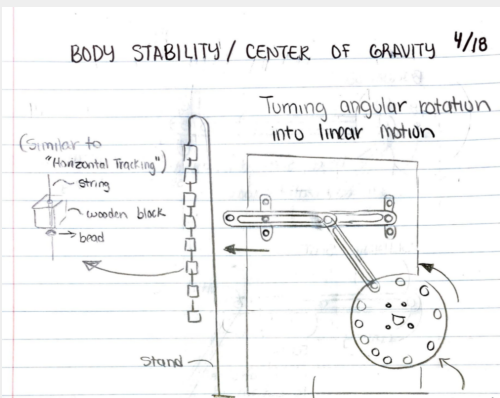 BODY STABILITY / CENTER OF GRAVITY 4/18
Turning angular rotation
into linear motion
(Similar to
"Horizontal Tracking")
string
wooden block
bead
Stand